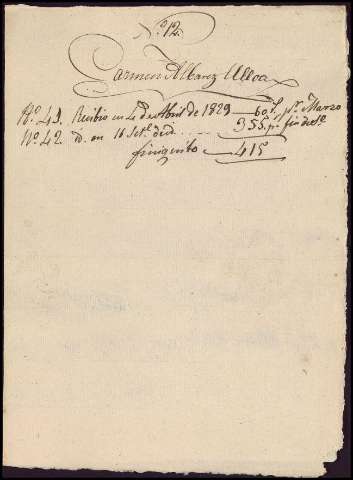 N.º 12.
Carmen Albarez Ulloa
N.º 41. Recibio en 4 de Abril de 1829 60 p.r Marzo
N.º 42. D. en 16 Set.e de id. 355. p.r fin de
finiquito 415